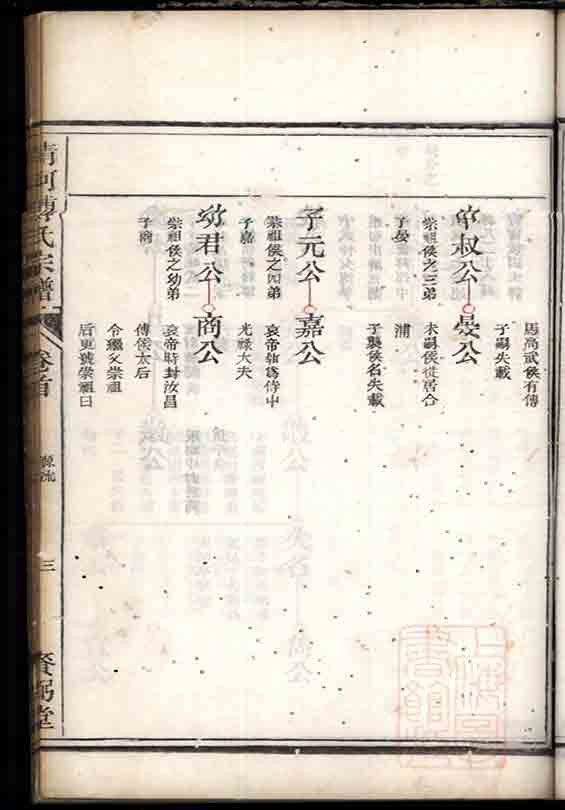 爲高武侯有傳
子嗣失載
中叔公
崇祖侯之三弟
子晏
晏公
未嗣侯徙居合
浦
子襲侯名失載
子元公
崇祖侯之四弟
子嘉
嘉公
哀帝朝爲侍中
光祿大夫
幼君公
崇祖侯之幼弟
子商
商公
哀帝時封汝昌
侯太后
令繼父崇祖
后更號崇祖曰
清河傅氏宗譜
卷首
源流
三
賚弼堂